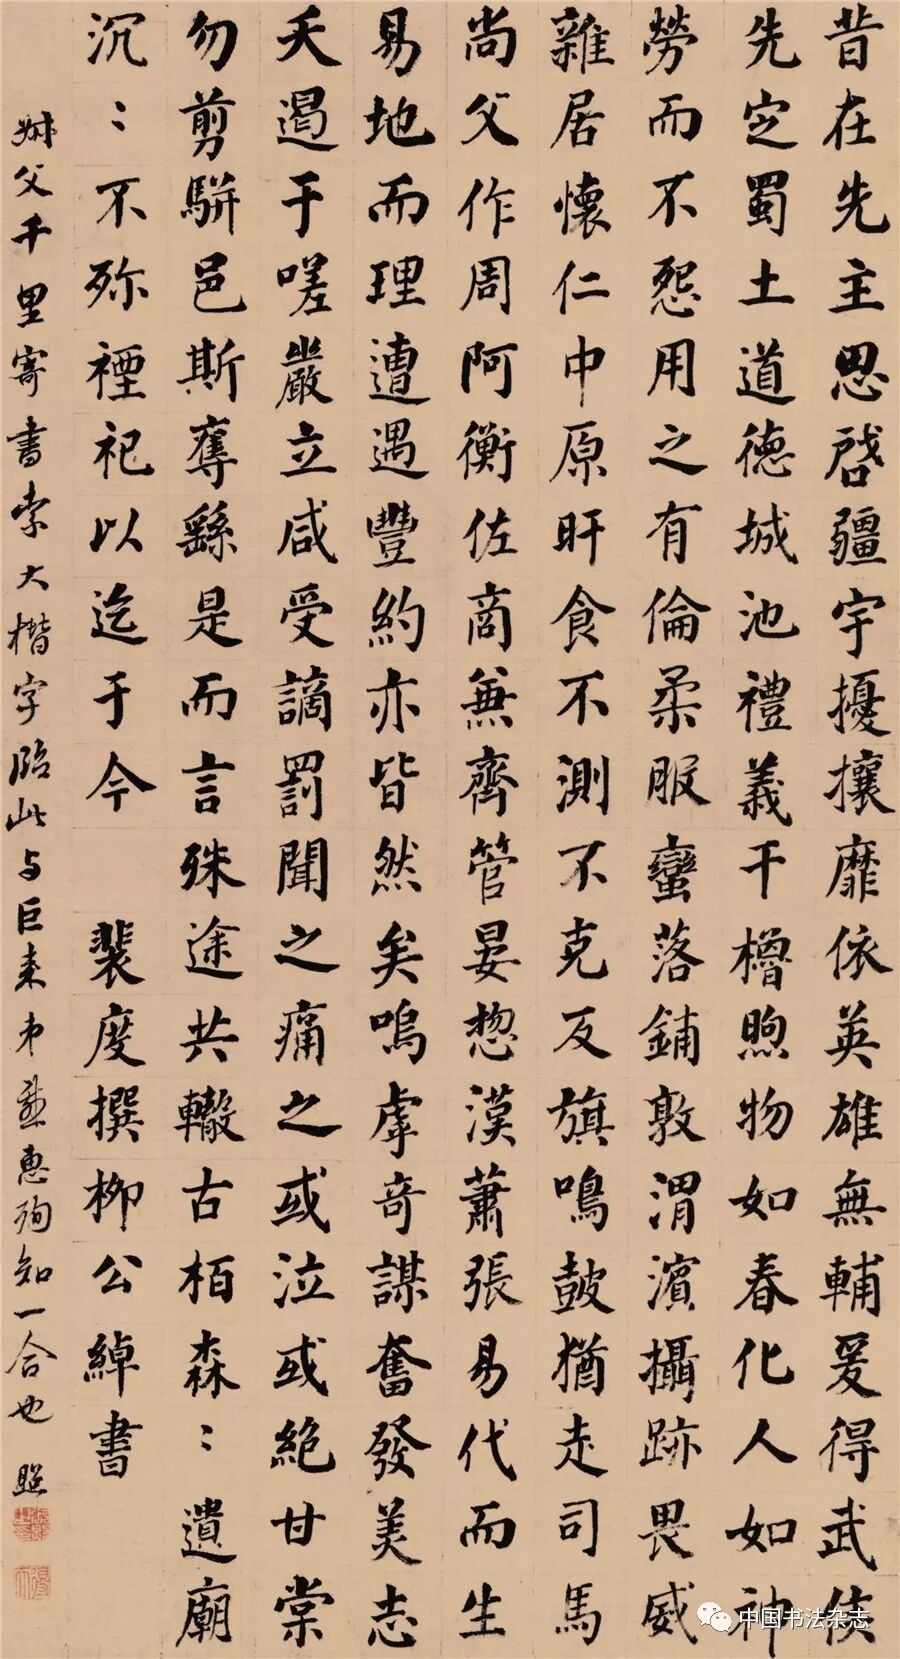 昔在先主思啓疆宇擾攘靡依英雄無輔爰得武侯
先定蜀土道德城池禮義干櫓煦物如春化人如神
勞而不怨用之有倫柔服蠻落鋪敦渭濱攝跡畏威
雜居懷仁中原旰食不測不克反旗鳴鼓猶走司馬
尚父作周阿衡佐商兼齊管晏惣漢蕭張易代而生
易地而理遭遇豐約亦皆然矣嗚虖奇謀奮發美志
夭遏于嗟嚴立咸受謫罰聞之痛之或泣或絶甘棠
勿剪駢邑斯奪繇是而言殊途共轍古栢森〻遺廟
沉〻不殄禋祀以迄于今 裴度撰柳公綽書
父千里寄書索大楷字臨此与巨来弟惠殉知一合也 照
中国书法杂志